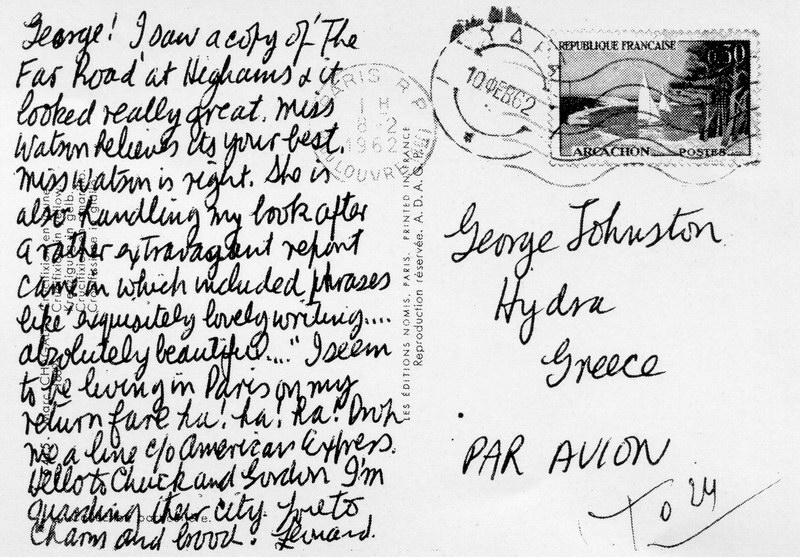 George! I saw a copy of 'The
Far Road' at Highams & it
looked really great. Miss
Watson believes its your best.
Miss Watson is right. She is
also handling my book after
a rather extravagant report
came in which included phrases
like "exquisitely lovely writing....
absolutely beautiful...." I seem
to be living in Paris on my
return fare ha! ha! ha! Drop
me a line c/o American Express.
Hello to Chuck and Gordon I'm
guarding their city. Love to
Charm and brood. Leonard.
PARIS R.P.
1 H
8-2
1962
DU LOUVRE
LES ÉDITIONS NOMIS, PARIS. PRINTED IN FRANCE
Reproduction réservée. A.D.A.G.P.
ΥΔΡΑ
10 ΦΕΒ 62
REPUBLIQUE FRANÇAISE
0,30
ARCACHON
POSTES
George Johnston
Hydra
Greece
PAR AVION
To 24